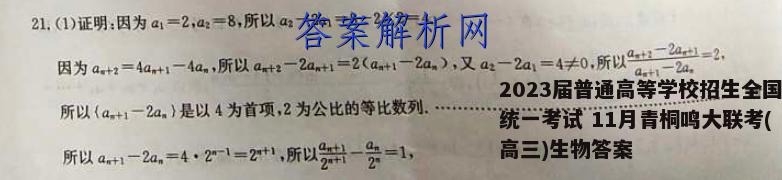 21. (1)证明:因为 a₁=2,a₂=8,所以 a₂
答案解析网
因为 aₙ₊₂=4aₙ₊₁-4aₙ,所以 aₙ₊₂-2aₙ₊₁=2(aₙ₊₁-2aₙ),又 a₂-2a₁=4≠0,所以(aₙ₊₂-2aₙ₊₁)/(aₙ₊₁-2aₙ)=2,
所以{aₙ₊₁-2aₙ}是以 4 为首项,2 为公比的等比数列.
所以 aₙ₊₁-2aₙ=4·2ⁿ⁻¹=2ⁿ⁺¹,所以aₙ₊₁/2ⁿ⁺¹-aₙ/2ⁿ=1,
2023届普通高等学校招生全国
统一考试 11月青桐鸣大联考(
高三)生物答案